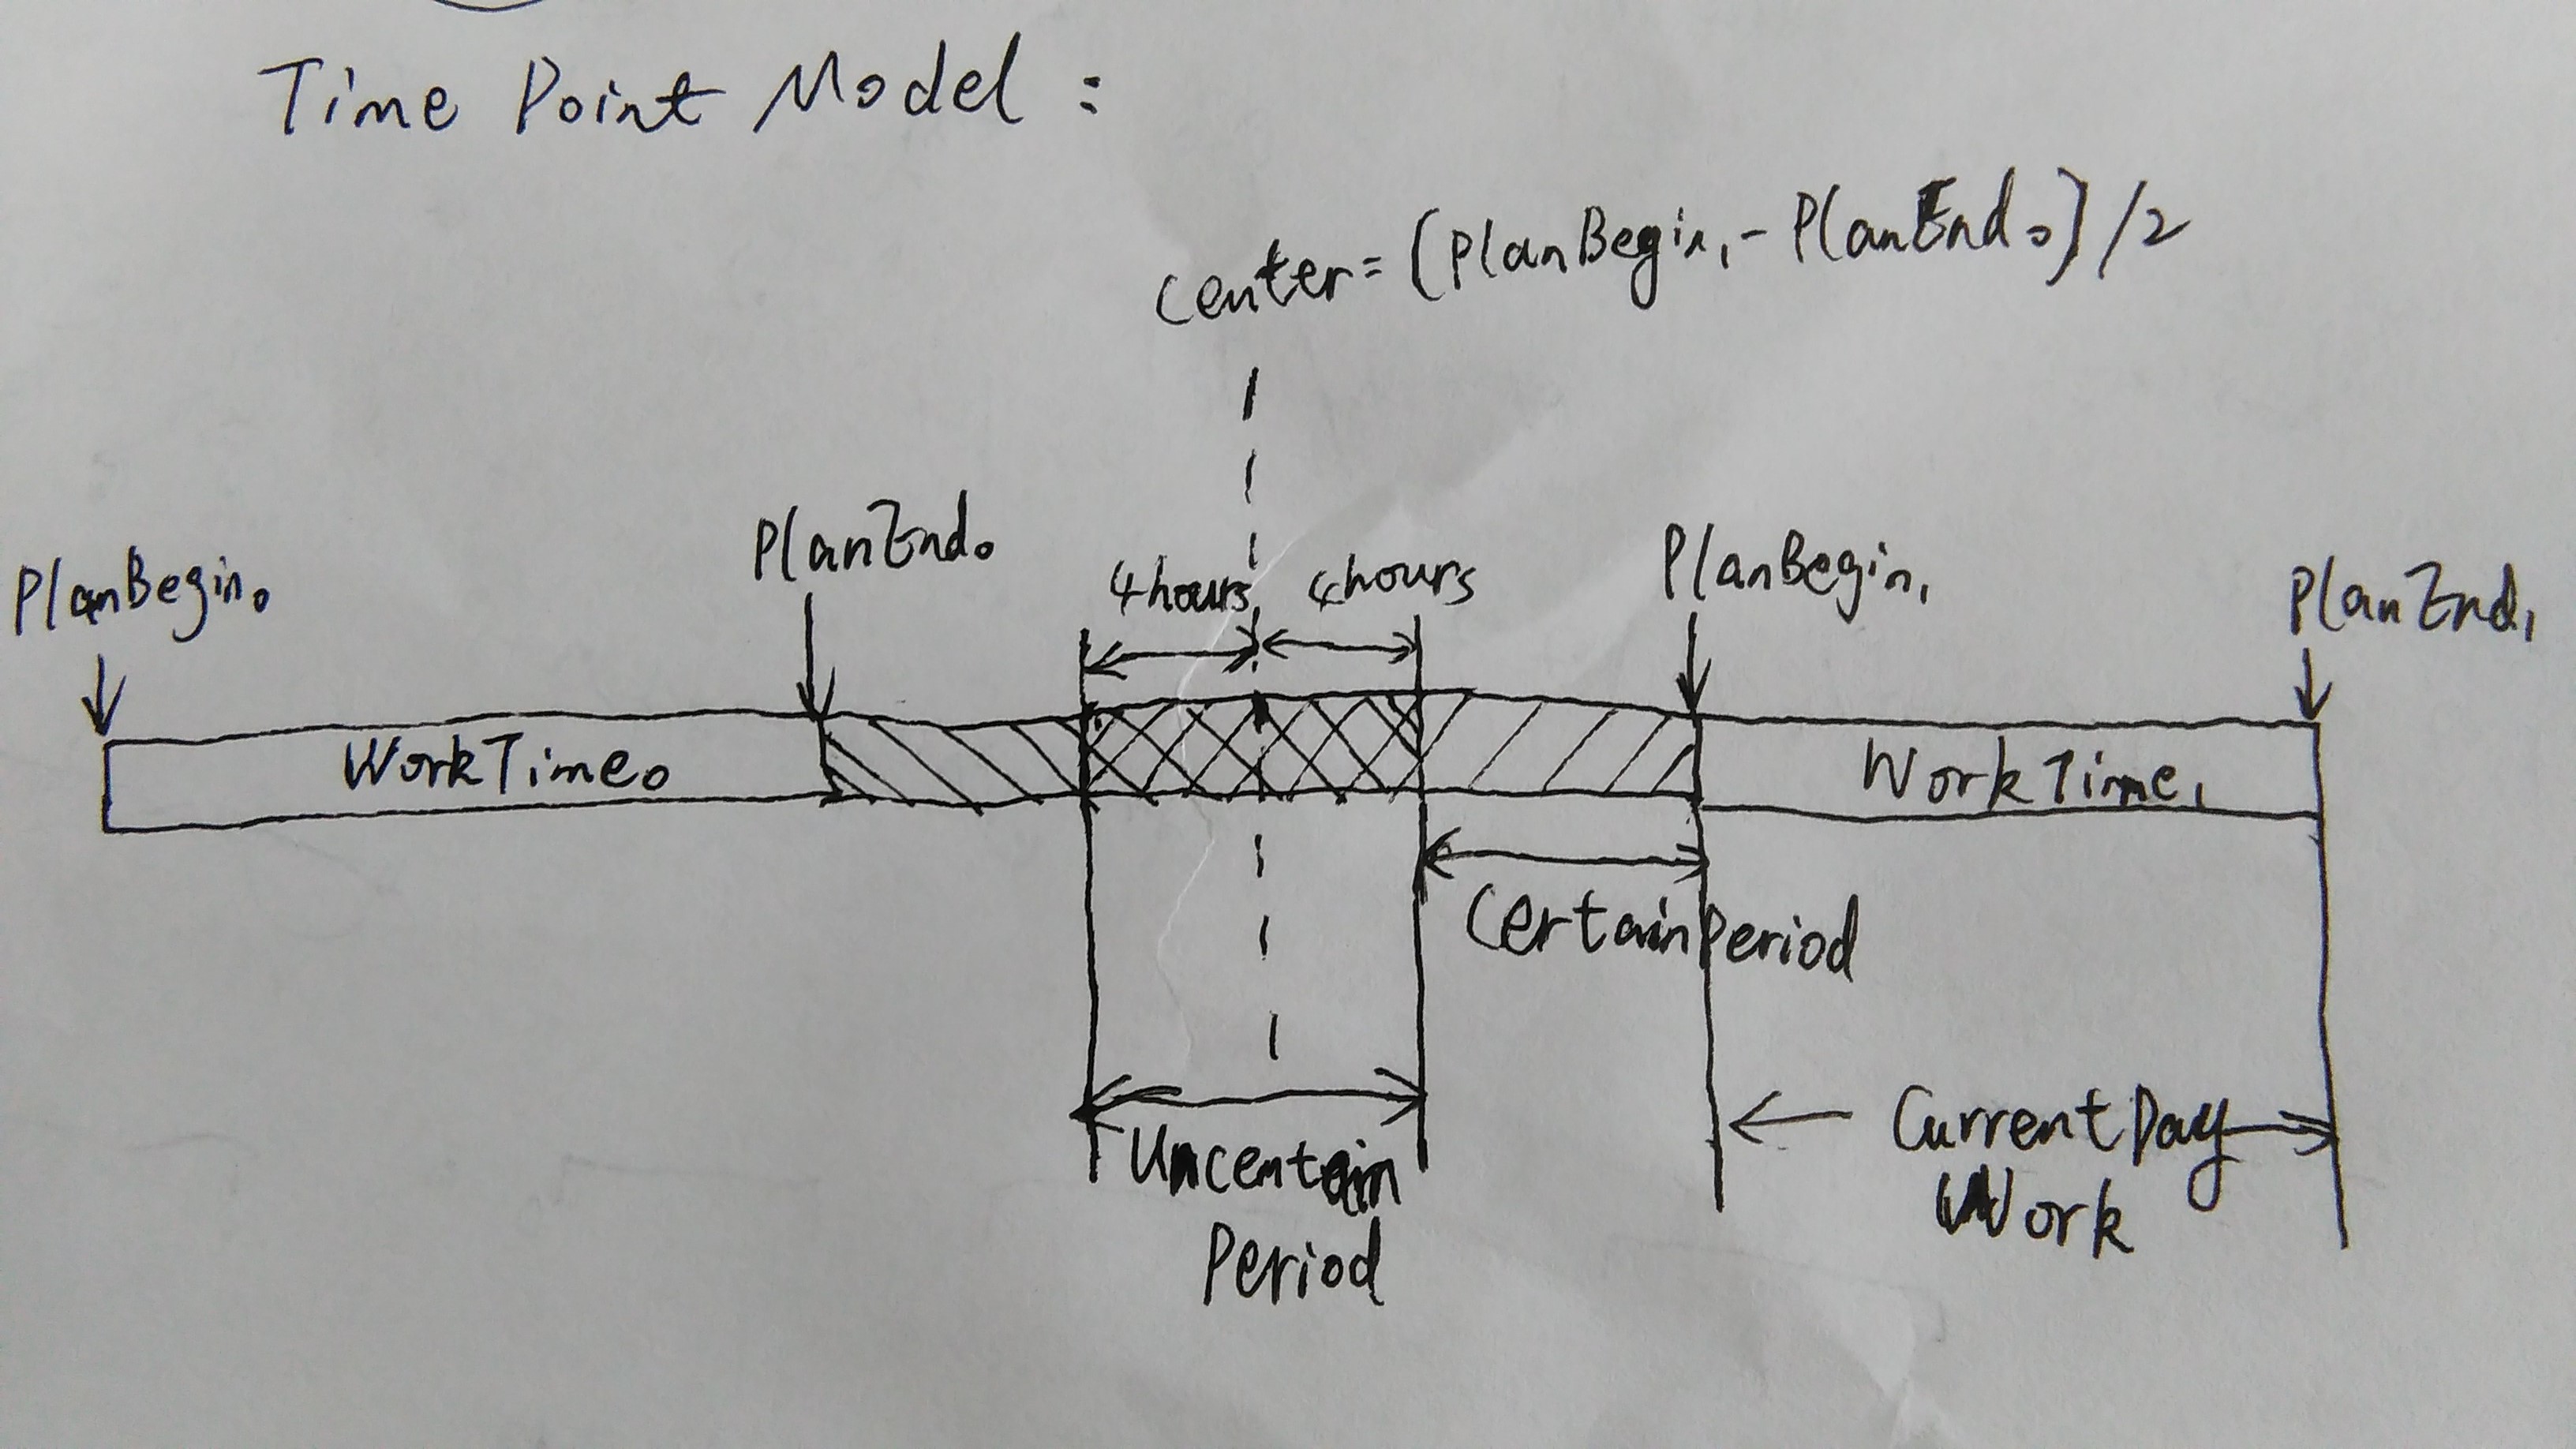 Time Point Model :
center = (PlanBegin₁ - PlanEnd₀) / 2
PlanBegin₀
PlanEnd₀
4hours
4hours
PlanBegin₁
PlanEnd₁
WorkTime₀
WorkTime₁
Certain Period
Uncentain
Period
CurrentDay
Work